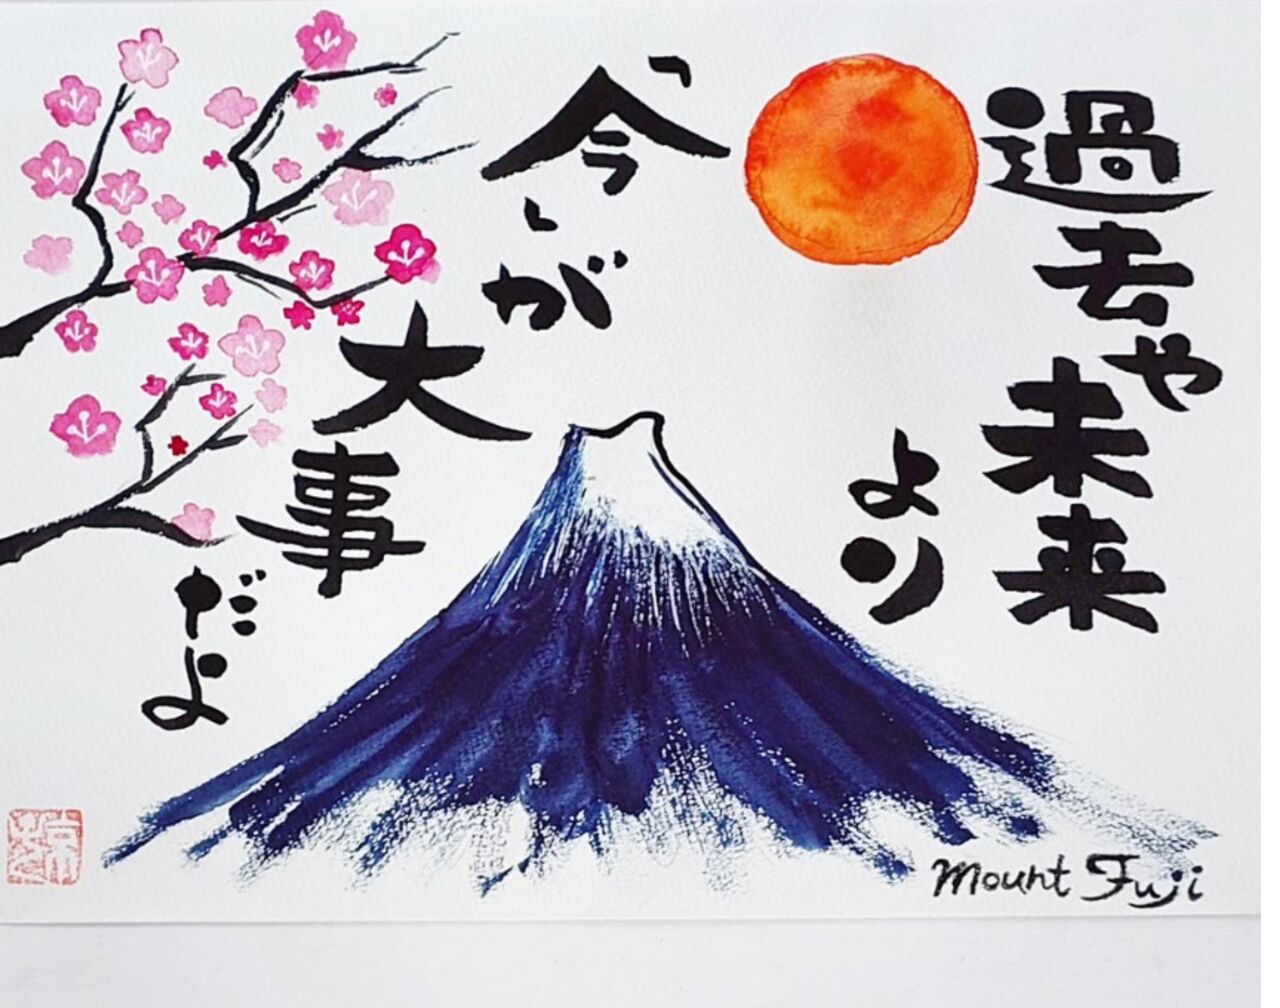 過去や
未来
より
「今」が
大
事
だよ
Mount Fuji